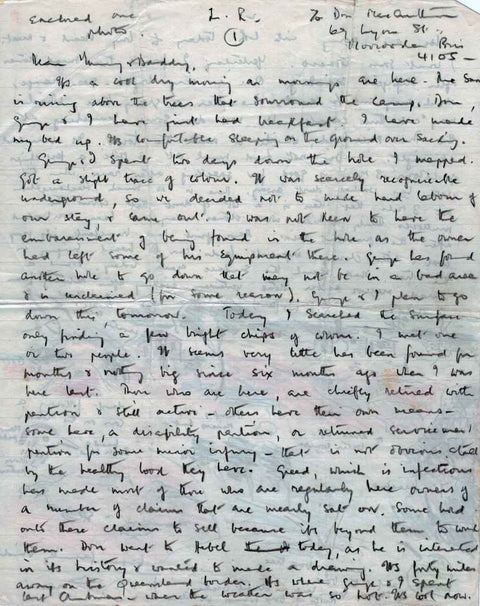 Enclosed one photo.
L. R.
①
To Don MacQuilliam
69 Lyons St.
Moorooka Bris
4105 -
Dear Mummy & Daddy,
Its a cool dry morning as mornings are here. The sun
is rising above the trees that surround the Camp. Don,
& I have just had breakfast. I have made
my bed up. Its comfortable sleeping on the ground over sacking.
& I spent two days down the hole I mapped.
Got a slight trace of colour. It was scarcely recognisable
underground, so we decided not to make hard labour of
our stay, & came out. I was not keen to have the
embarrassment of being found in the hole, as the owner
had left some of his equipment there. has found
another hole to go down that may not be in a bad area
& is unclaimed (for some reason). & I plan to go
down this, tomorrow. Today I searched the surface
only finding a few bright chips of colour. I met one
or two people. It seems very little has been found for
months & nothing big since six months ago when I was
here last. Those who are here, are chiefly retired with
pention & still active - others have their own means -
some have, a disability pention, or returned servicemens'
pention for some minor injury - that is not obvious,
by the healthy look they have. Greed, which is infectious
has made most of those who are regularly here owners of
a number of claims that are nearly sat on. Some hold
onto these claims to sell because its beyond them to work
them. Don went to Hebel today, as he is interested
in its history & wanted to make a drawing. Its forty miles
away on the Queensland border. Its where & I spent
last Autumn - when the weather was so hot. Its cool now.